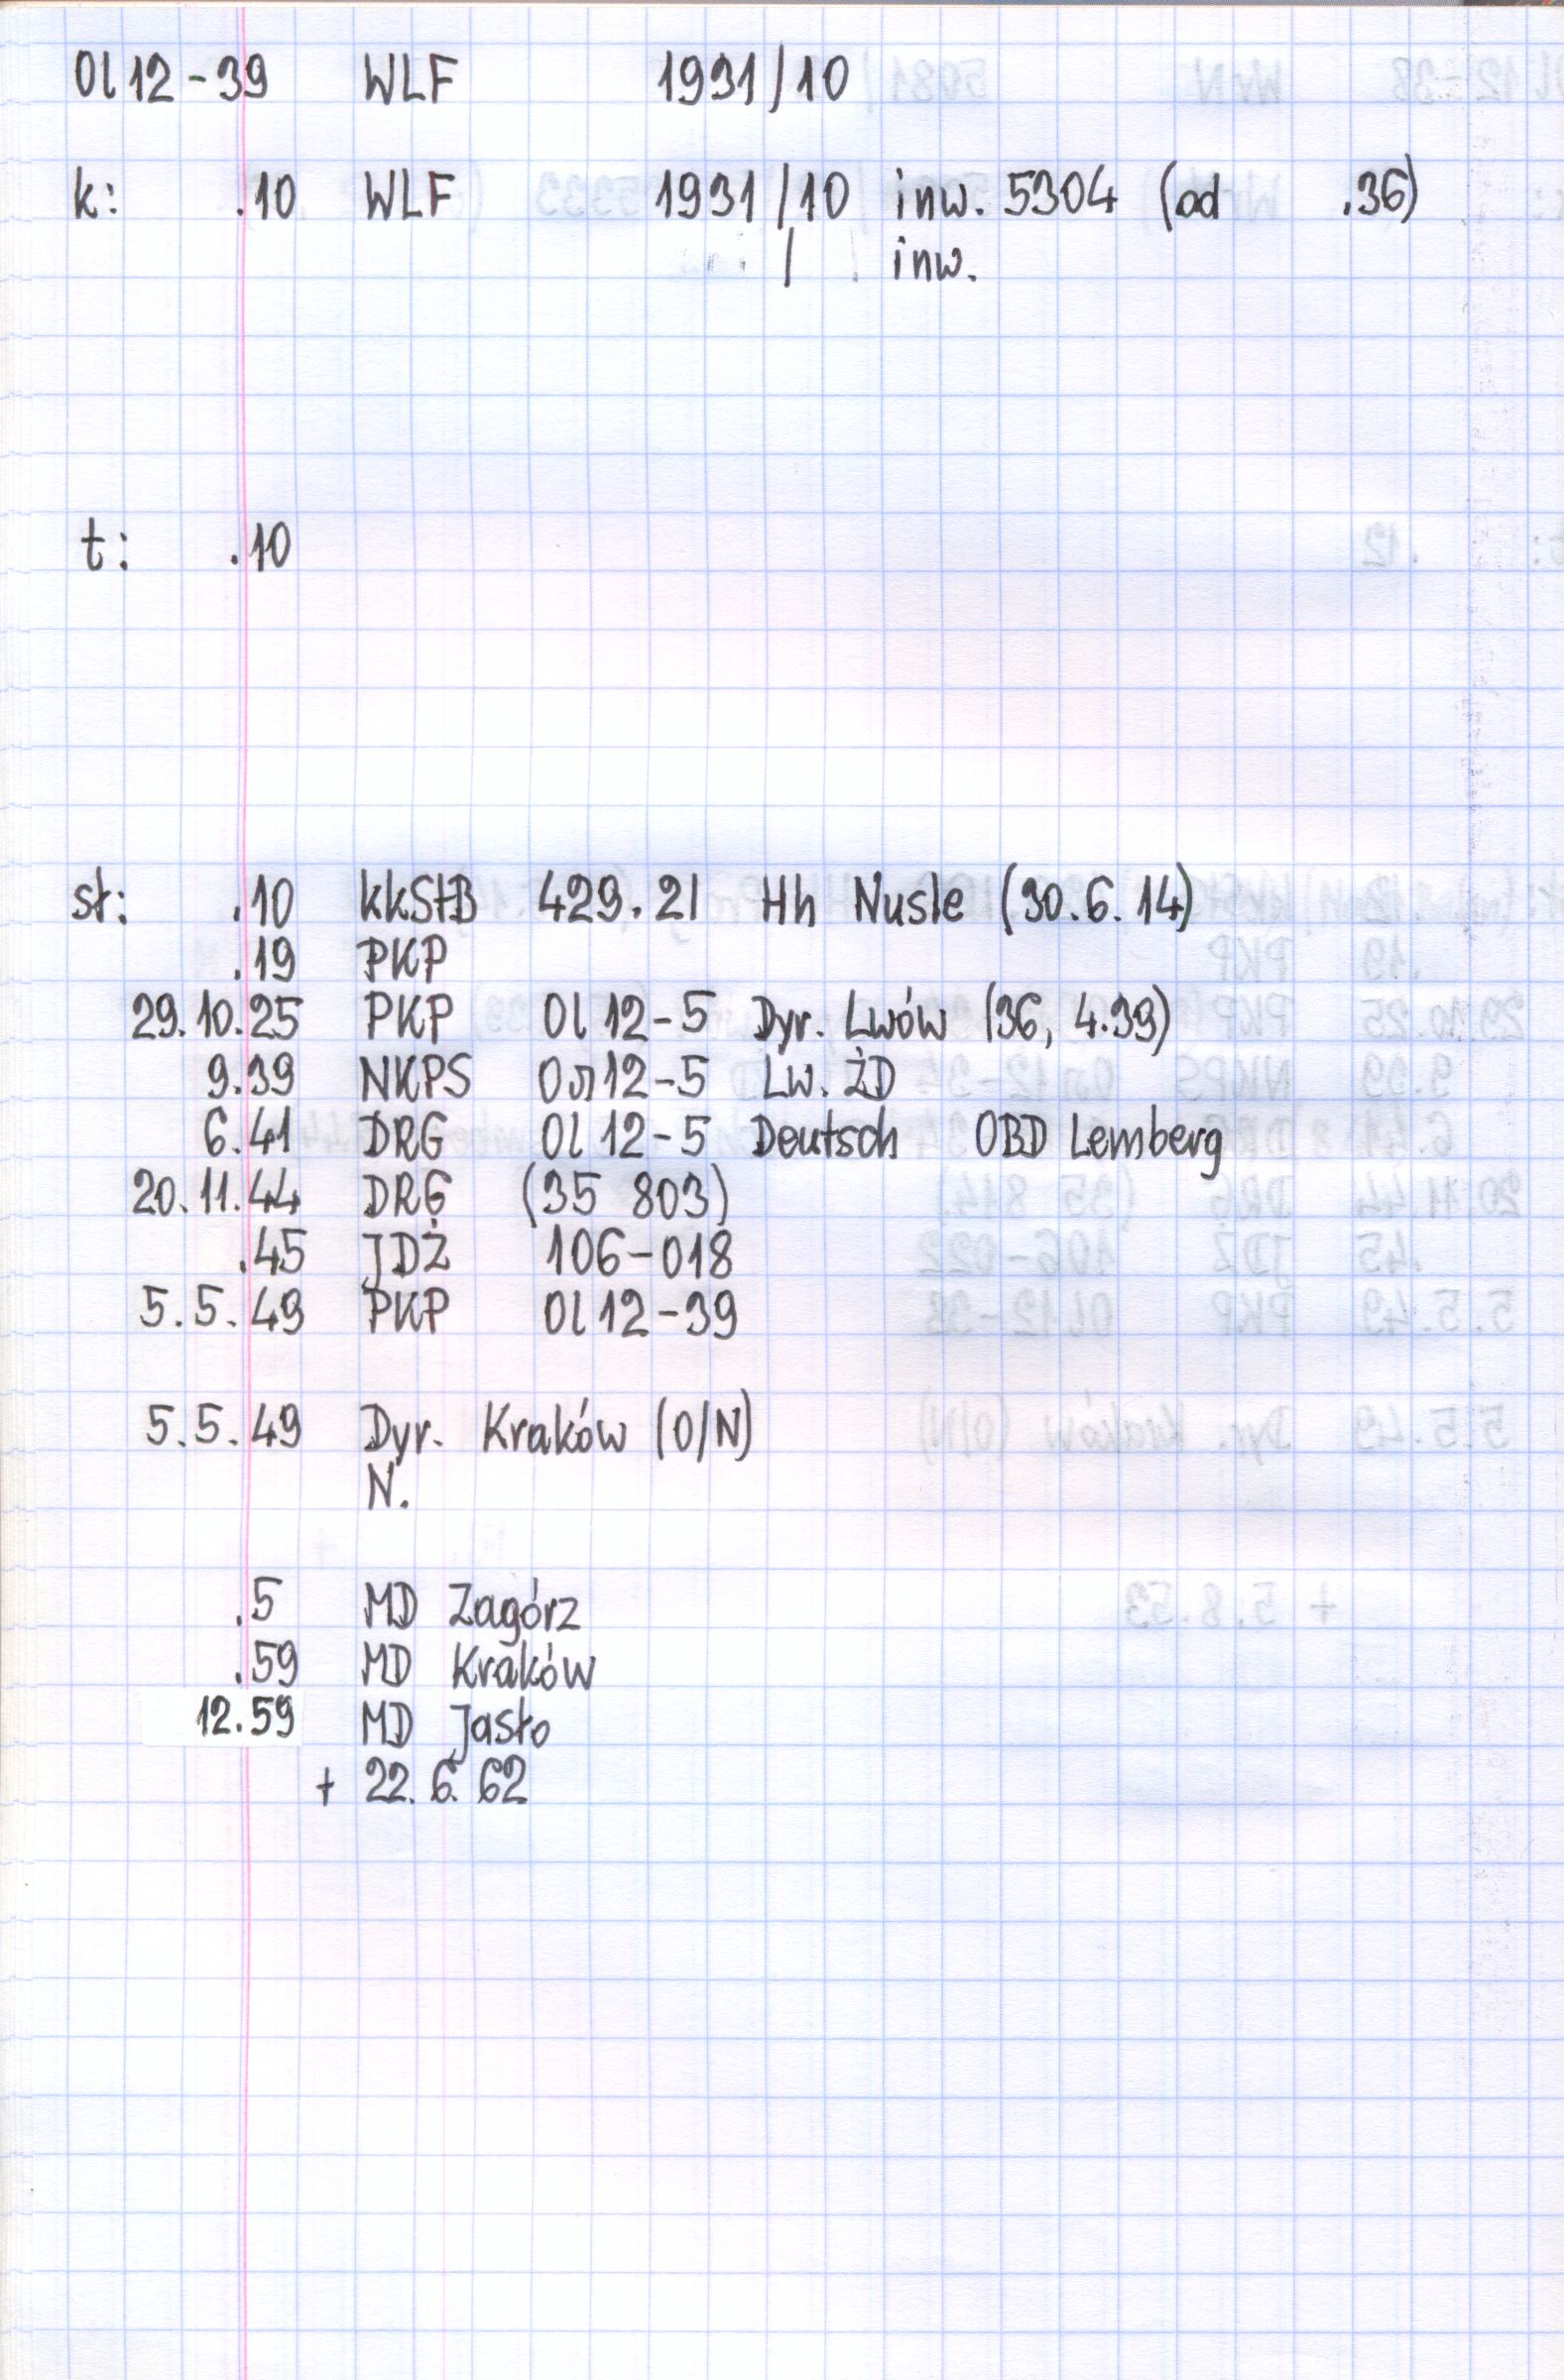 Ol 12-39 WLF 1931/10
k: .10 WLF 1931/10 inw. 5304 (od .36)
/ inw.
t: .10
st: .10 kkStB 429.21 Hh Nusle (30.6.14)
.19 PKP
29.10.25 PKP Ol 12-5 Dyr. Lwów (36, 4.39)
9.39 NKPS Ол 12-5 Lw. ŻD
6.41 DRG Ol 12-5 Deutsch OBD Lemberg
20.11.44 DRG (35 803)
.45 JDŻ 106-018
5.5.49 PKP Ol 12-39
5.5.49 Dyr. Kraków (O/N)
N.
.5 MD Zagórz
.59 MD Kraków
12.59 MD Jasło
+ 22.6.62